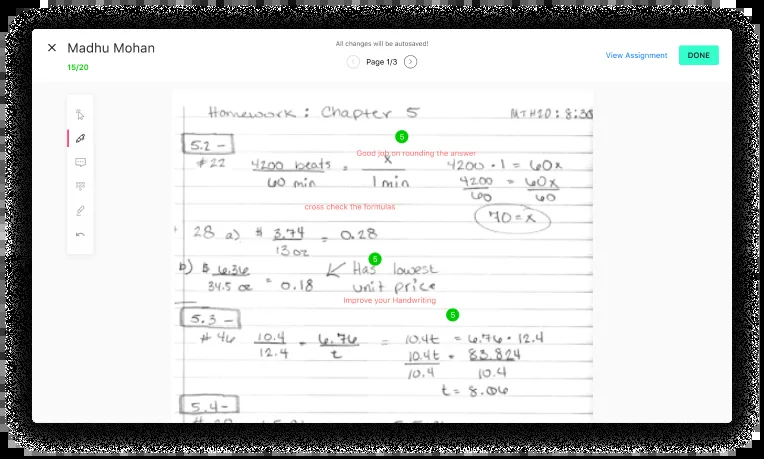 Madhu Mohan
15/20
All changes will be autosaved!
Page 1/3
View Assignment
DONE
Homework : Chapter 5
MTH20 : 8:30
5
5.2 -
Good job on rounding the answer
#22 4200 beats / 60 min = x / 1 min
4200 · 1 = 60x
4200 / 60 = 60x / 60
70 = x
cross check the formulas
28 a) $ 3.74 / 13 oz = 0.28
5
b) $ 6.36 / 34.5 oz = 0.18
Has lowest
unit price
Improve your Handwriting
5
5.3 -
#46 10.4 / 12.4 = 6.76 / t
= 10.4t = 6.76 · 12.4
10.4t / 10.4 = 83.824 / 10.4
t = 8.06
5.4 -